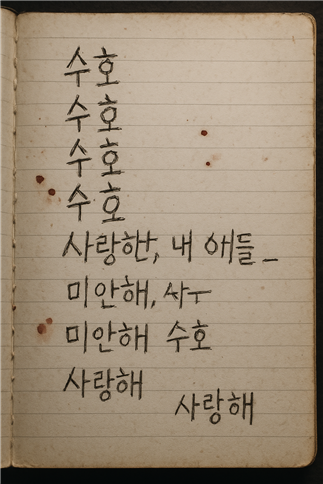 수호
수호
수호
수호
사랑한, 내 애들_
미안해,
미안해 수호
사랑해
사랑해